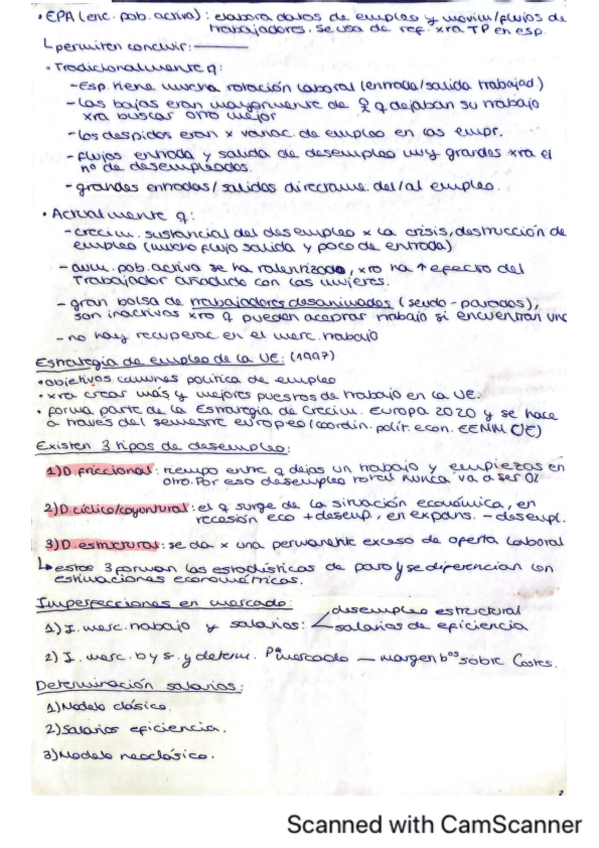 • EPA (enc. pob. activa): elabora datos de empleo y movim/flujos de
trabajadores. Se usa de ref. xra TP en esp.
↳ permiten concluir:
• Tradicionalmente q:
- Esp. tiene mucha rotación laboral (entrada/salida trabajad)
- Las bajas eran mayormente de ♀ q dejaban su trabajo
xra buscar otro mejor
- los despidos eran x variac de empleo en las empr.
- flujos entrada y salida de desempleo muy grandes xra el
nº de desempleados.
- grandes entradas/salidas directame del/al empleo.
• Actualmente q:
- crecim. sustancial del desempleo x la crisis, destrucción de
empleo (mucho flujo salida y poco de entrada)
- aum. pob. activa se ha ralentizado, xro ha ↑ efecto del
Trabajador añadido con las mujeres.
- gran bolsa de trabajadores desanimados (seudo-parados),
son inactivos xro q pueden aceptar trabajo si encuentran uno
- no hay recuperac en el merc. trabajo
Estrategia de empleo de la UE: (1997)
• objetivos comunes política de empleo
• xra crear más y mejores puestros de trabajo en la UE.
• forma parte de la Estrategia de Crecim. Europa 2020 y se hace
a través del semestre europeo (coordin. polít. econ. EEMM UE)
Existen 3 tipos de desempleo:
1) D. friccional: tiempo entre q dejas un trabajo y empiezas en
otro. Por eso desempleo total nunca va a ser 0%
2) D cíclico/coyuntural: el q surge de la situación económica, en
recesión eco + desemp, en expans. - desempl.
3) D estructural: se da x una permanente exceso de oferta laboral
↳ estos 3 forman las estadísticas de paro y se diferencian con
estimaciones econométricas.
Imperfecciones en mercado:
1) I. merc. trabajo y salarios: desempleo estructural
salarios de eficiencia
2) I. merc. b y s. y determ. Pª mercado — margen bºs sobre Costes.
Determinación salarios:
1) Modelo clásico.
2) Salarios eficiencia.
3) Modelo neoclásico.
Scanned with CamScanner